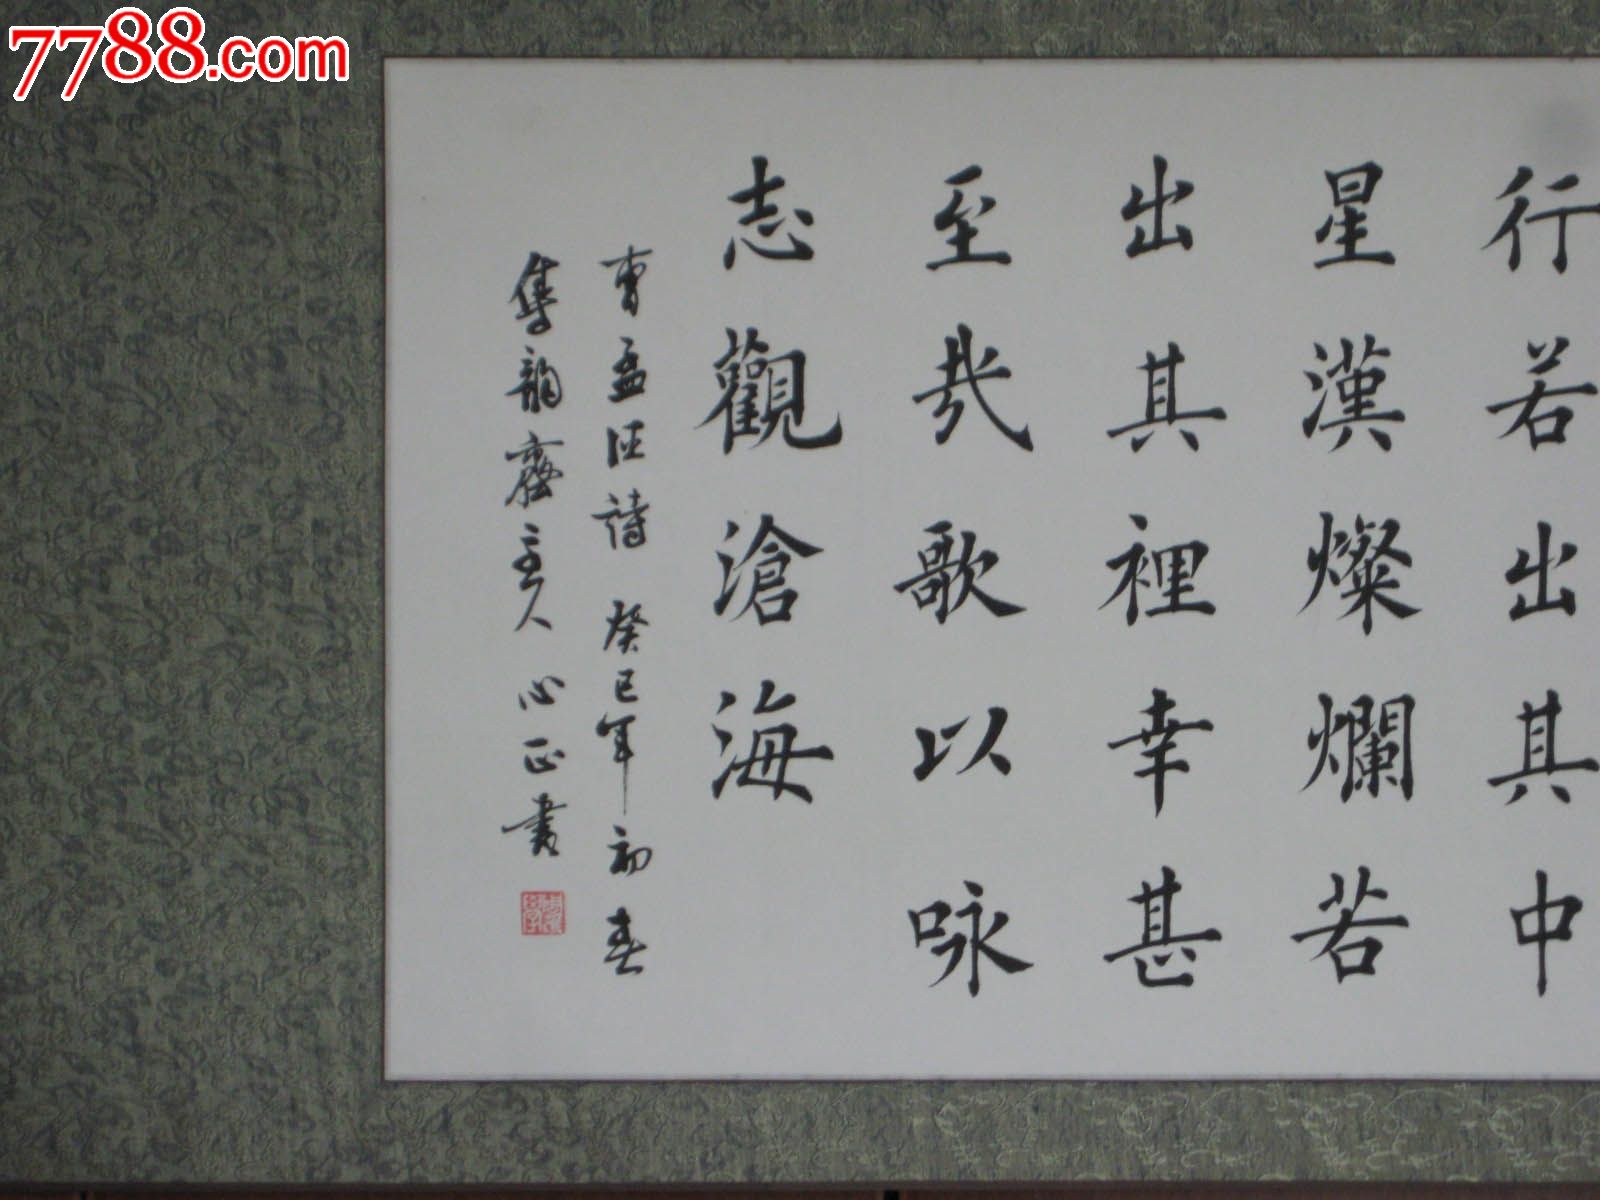 7788.com
行若出其中
星漢燦爛若
出其裡幸甚
至哉歌以咏
志觀滄海
曹孟德詩 癸巳年初春
集韻齋主人 心正書